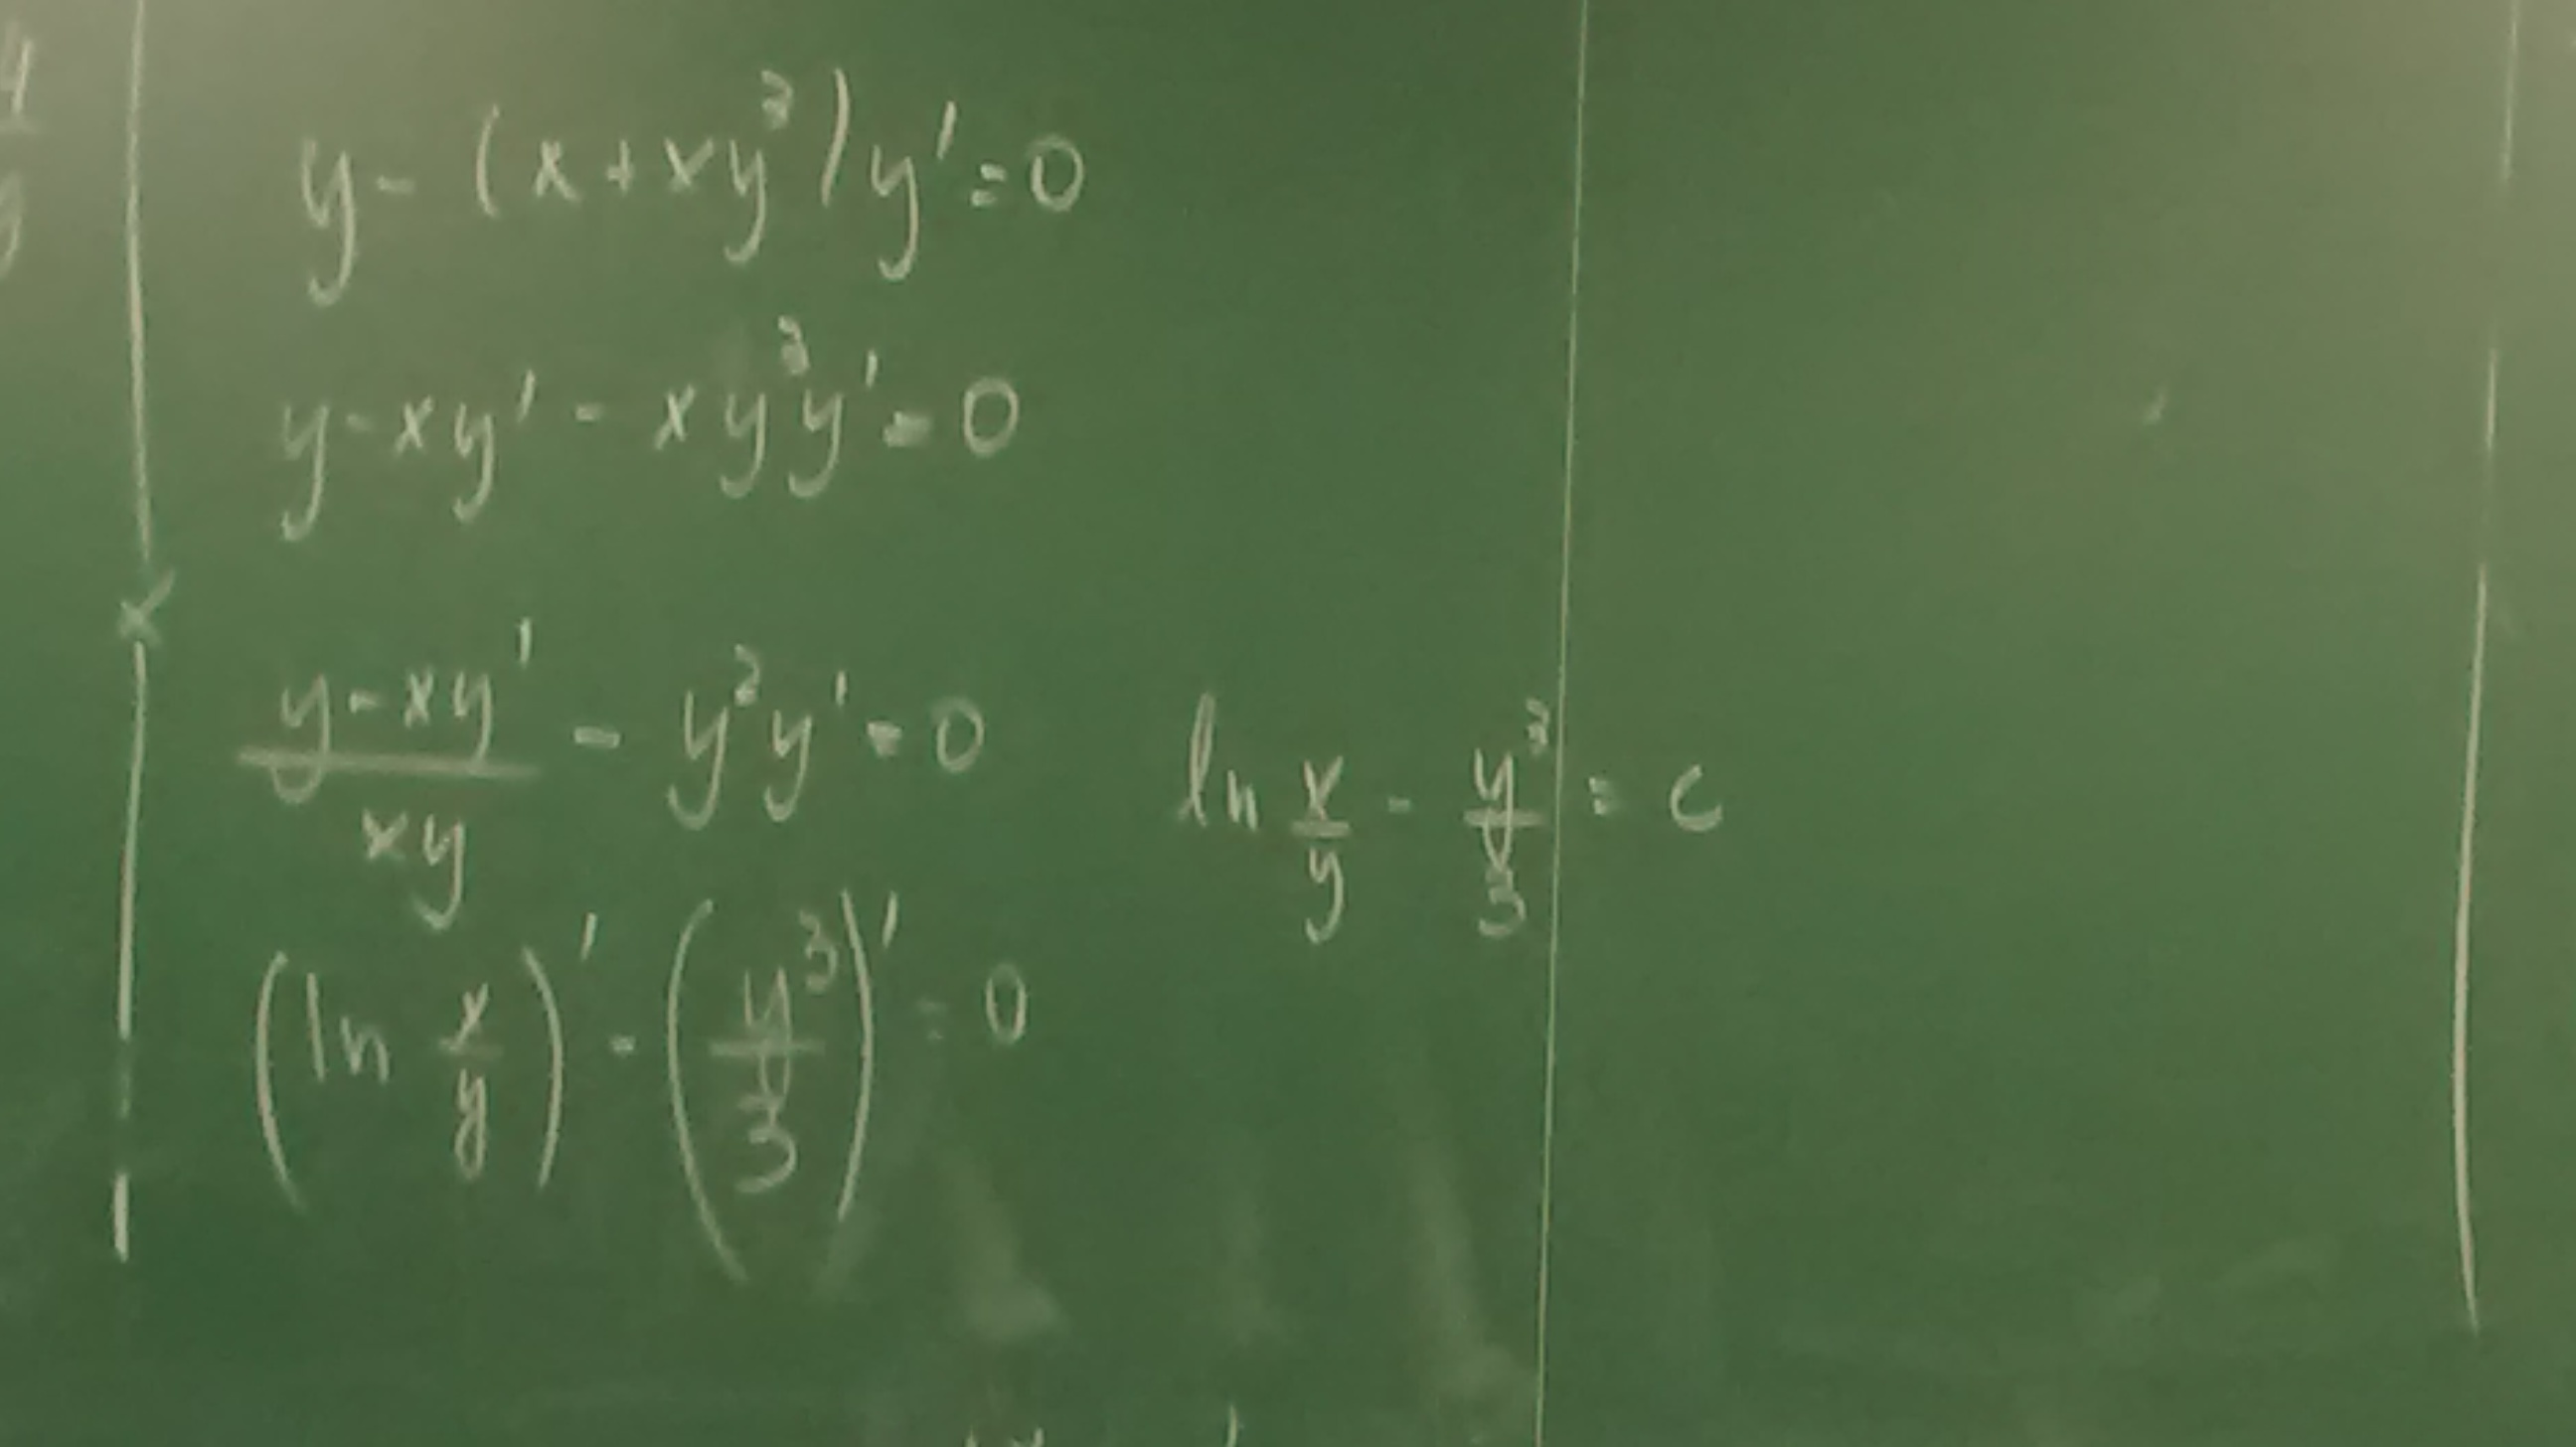 y - (x + xy³) y' = 0
y - xy' - xy³y' = 0
(y - xy')/(xy) - y²y' = 0
(ln x/y)' - (y³/3)' = 0
ln x/y - y³/3 = c